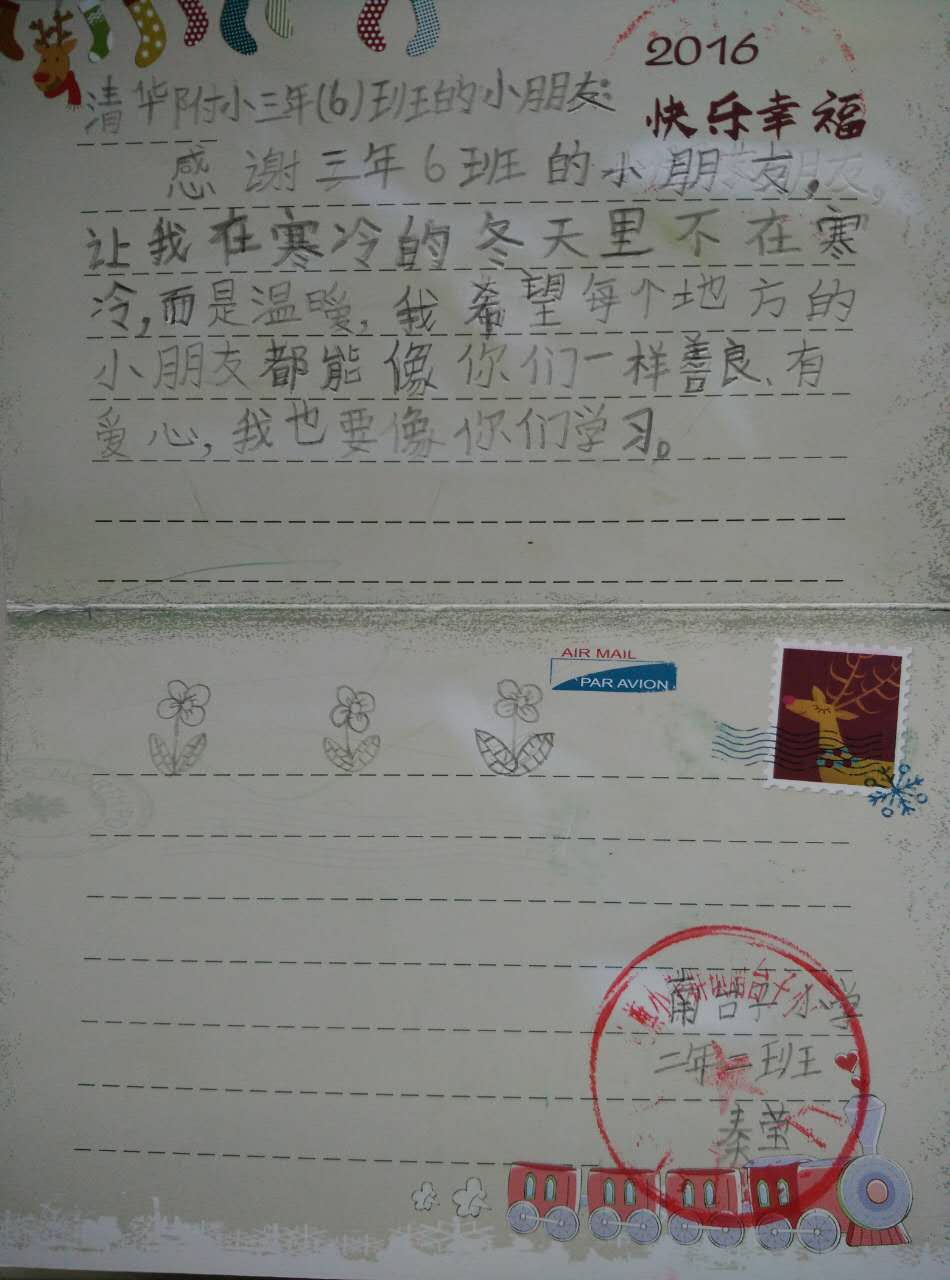 2016
快乐幸福
清华附小三年(6)班的小朋友:
感谢三年6班的小朋友,
让我在寒冷的冬天里不在寒
冷,而是温暖,我希望每个地方的
小朋友都能像你们一样善良、有
爱心,我也要像你们学习。
AIR MAIL
PAR AVION
南台子小学
二年二班
秦莹